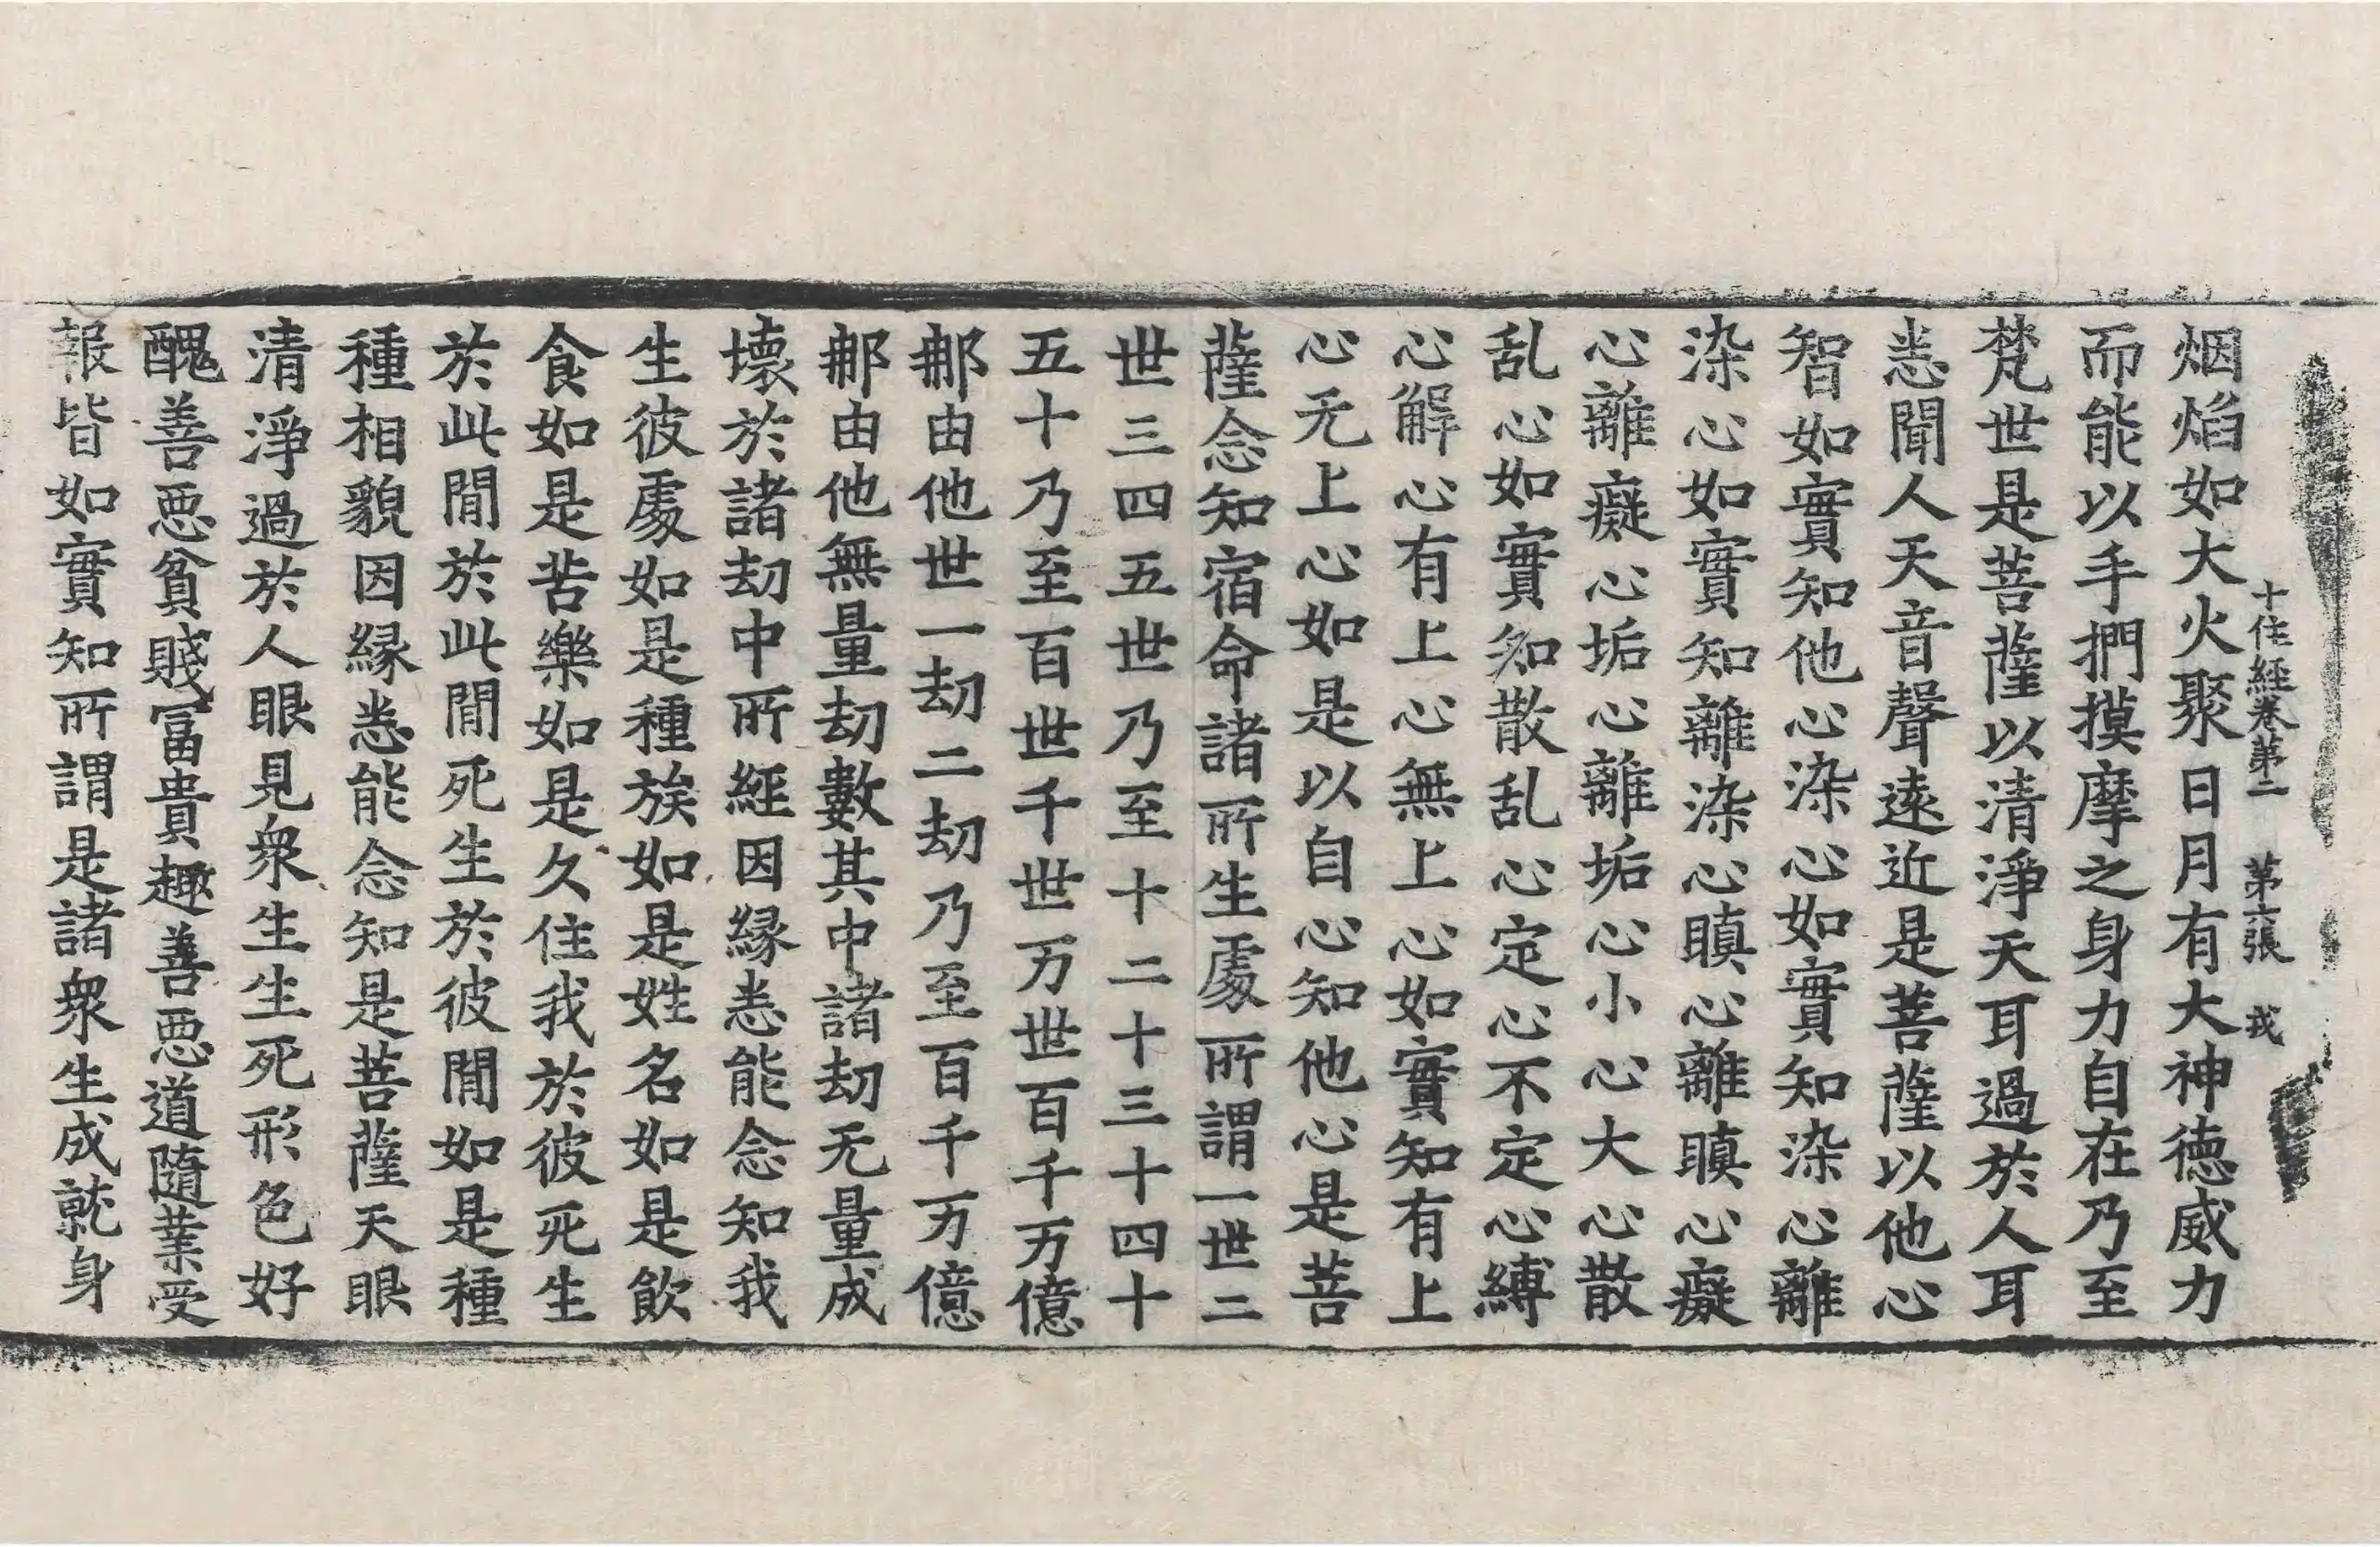 十住經卷第二 第六張 戎
烟焰如大火聚日月有大神德威力
而能以手捫摸摩之身力自在乃至
梵世是菩薩以清淨天耳過於人耳
悉聞人天音聲遠近是菩薩以他心
智如實知他心染心如實知染心離
染心如實知離染心瞋心離瞋心癡
心離癡心垢心離垢心小心大心散
乱心如實知散乱心定心不定心縛
心解心有上心無上心如實知有上
心无上心如是以自心知他心是菩
薩念知宿命諸所生處所謂一世二
世三四五世乃至十二十三十四十
五十乃至百世千世万世百千万億
那由他世一劫二劫乃至百千万億
那由他無量劫數其中諸劫无量成
壞於諸劫中所經因緣悉能念知我
生彼處如是種族如是姓名如是飲
食如是苦樂如是久住我於彼死生
於此間於此間死生於彼間如是種
種相貌因緣悉能念知是菩薩天眼
清淨過於人眼見衆生生死形色好
醜善惡貧賤冨貴趣善惡道隨業受
報皆如實知所謂是諸衆生成就身